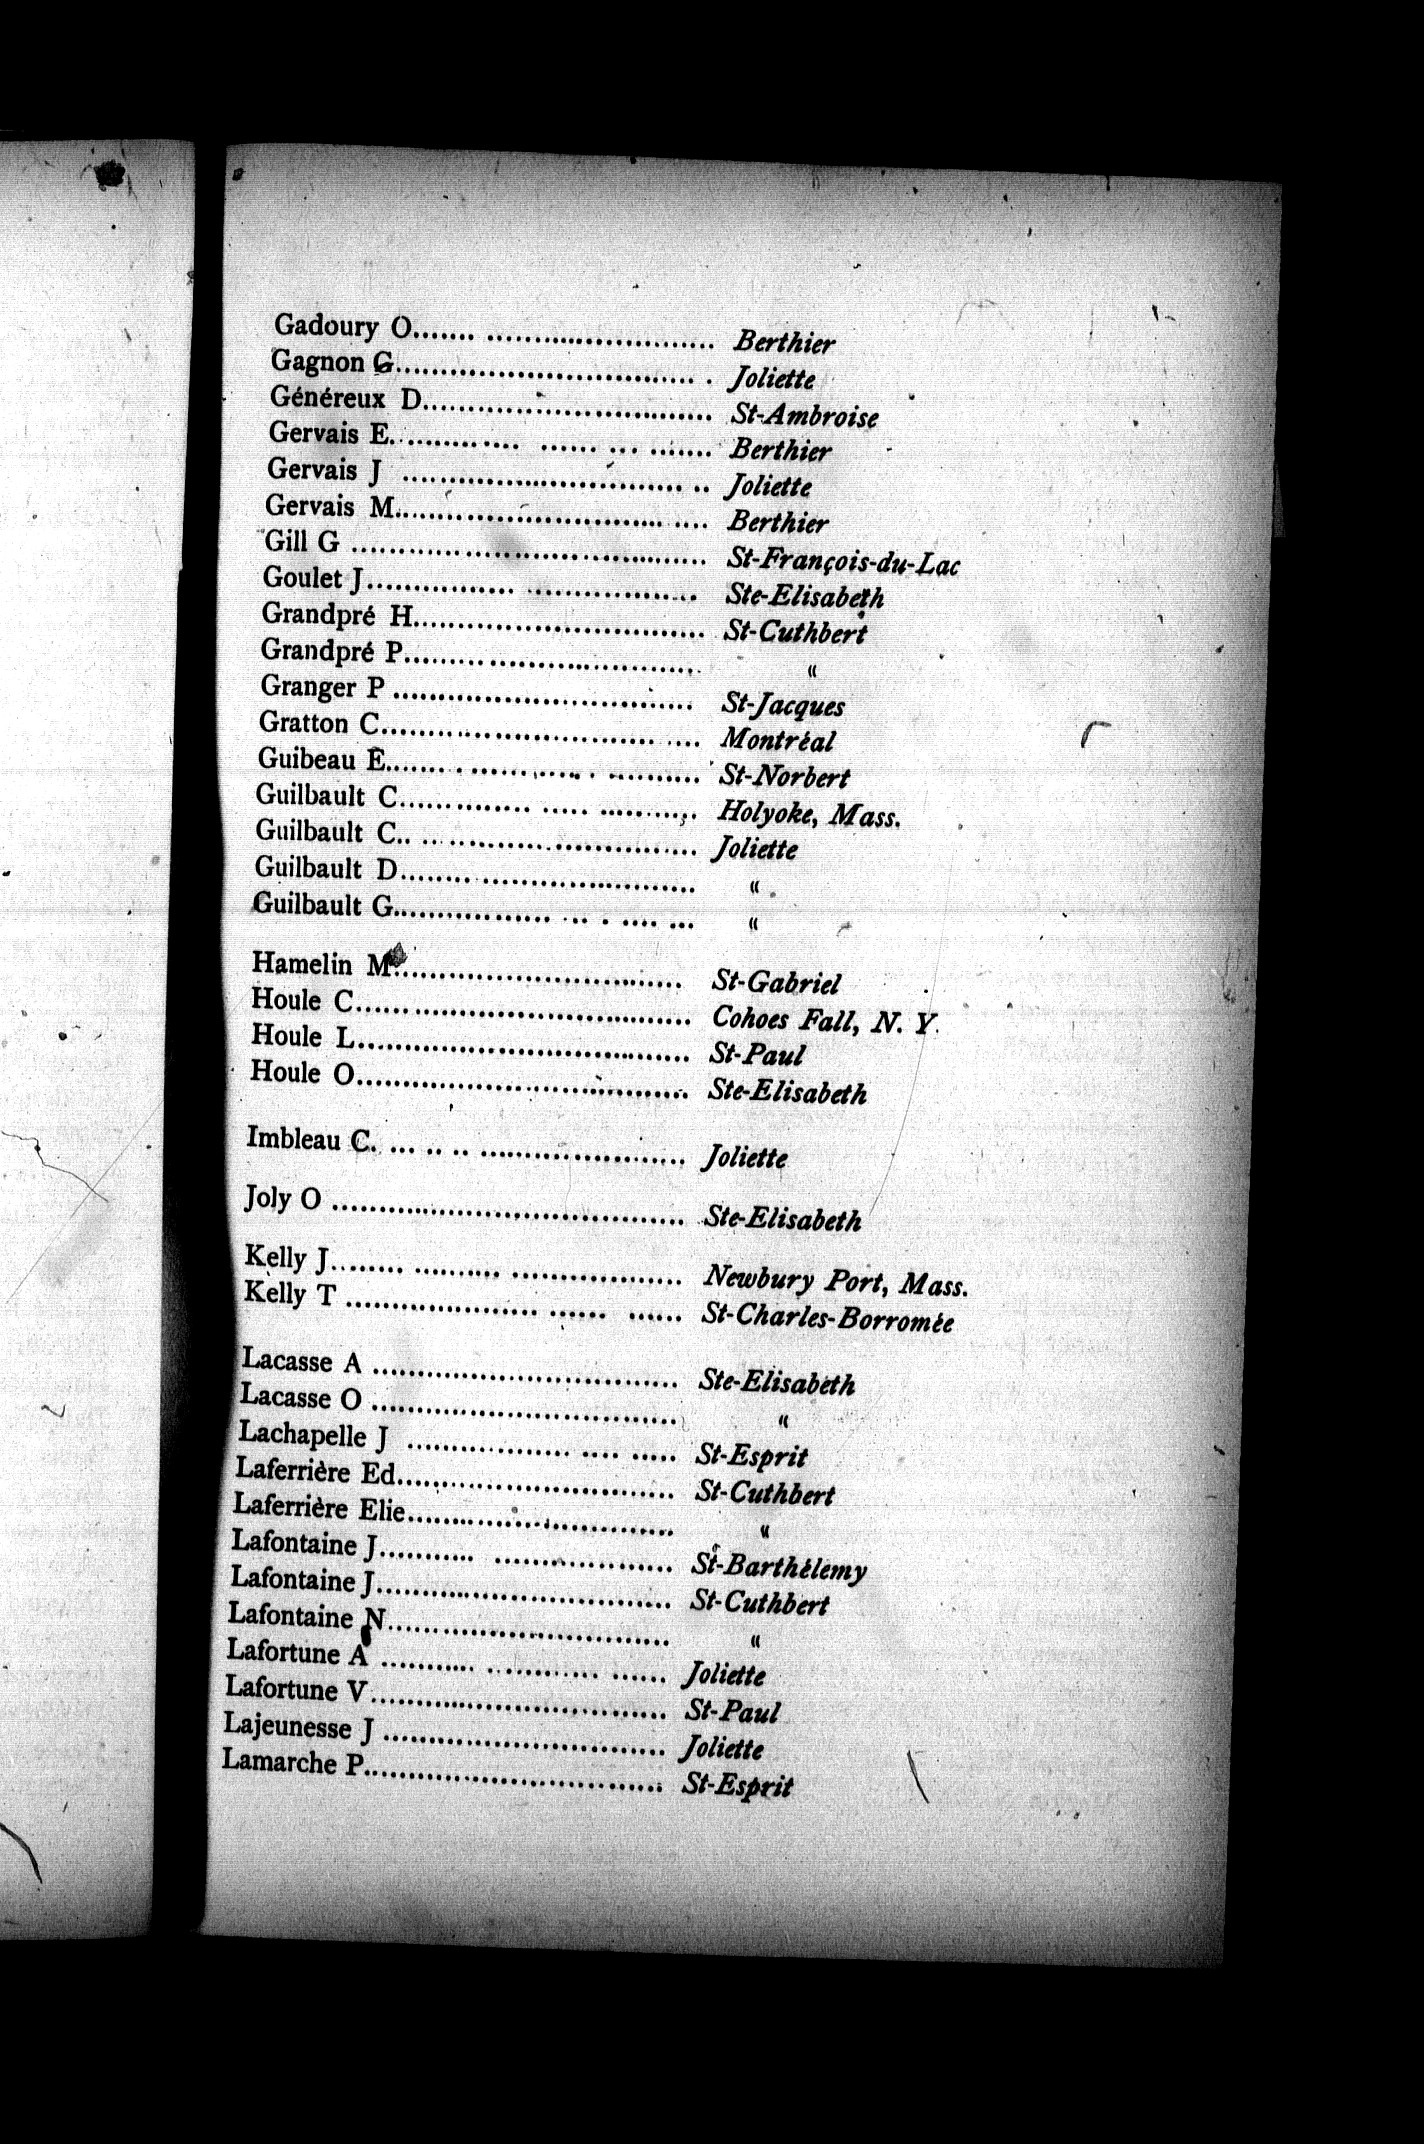 Gadoury O....... ........................... Berthier
Gagnon G................................. . Joliette
Généreux D................................ St-Ambroise
Gervais E. ............ ...... ... ....... Berthier
Gervais J ............................... .. Joliette
Gervais M............................. .... Berthier
Gill G ...................................... St-François-du-Lac
Goulet J................ .................. Ste-Elisabeth
Grandpré H................................ St-Cuthbert
Grandpré P................................ “
Granger P ................................ St-Jacques
Gratton C.............................. .... Montréal
Guibeau E....... . ....... ........ . .......... St-Norbert
Guilbault C.............. ..... .......... Holyoke, Mass.
Guilbault C.. .............................. Joliette
Guilbault D........ ....................... “
Guilbault G................. ... . .... ... “
Hamelin M............................... St-Gabriel
Houle C...... .............................. Cohoes Fall, N. Y.
Houle L.................................... St-Paul
Houle O.................................... Ste-Elisabeth
Imbleau C. ... .. .. ...................... Joliette
Joly O ...................................... Ste-Elisabeth
Kelly J........ .......... .................. Newbury Port, Mass.
Kelly T ..................... ...... ...... St-Charles-Borromée
Lacasse A ................................. Ste-Elisabeth
Lacasse O ................................. “
Lachapelle J .................. .... ..... St-Esprit
Laferrière Ed.............................. St-Cuthbert
Laferrière Elie............................. “
Lafontaine J.......... .................... St-Barthélemy
Lafontaine J................................ St-Cuthbert
Lafontaine N.............................. “
Lafortune A .......... ............ ...... Joliette
Lafortune V................................ St-Paul
Lajeunesse J .............................. Joliette
Lamarche P................................ St-Esprit